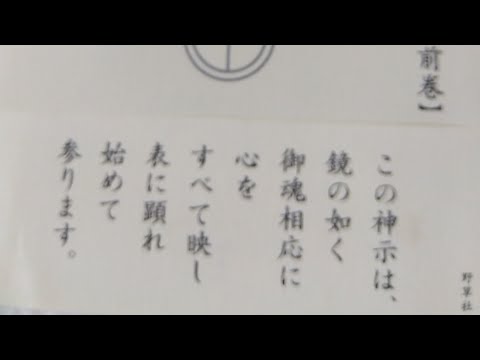 前巻】
この神示は、
鏡の如く
御魂相応に
心を
すべて映し
表に顕れ
始めて
参ります。
野草社